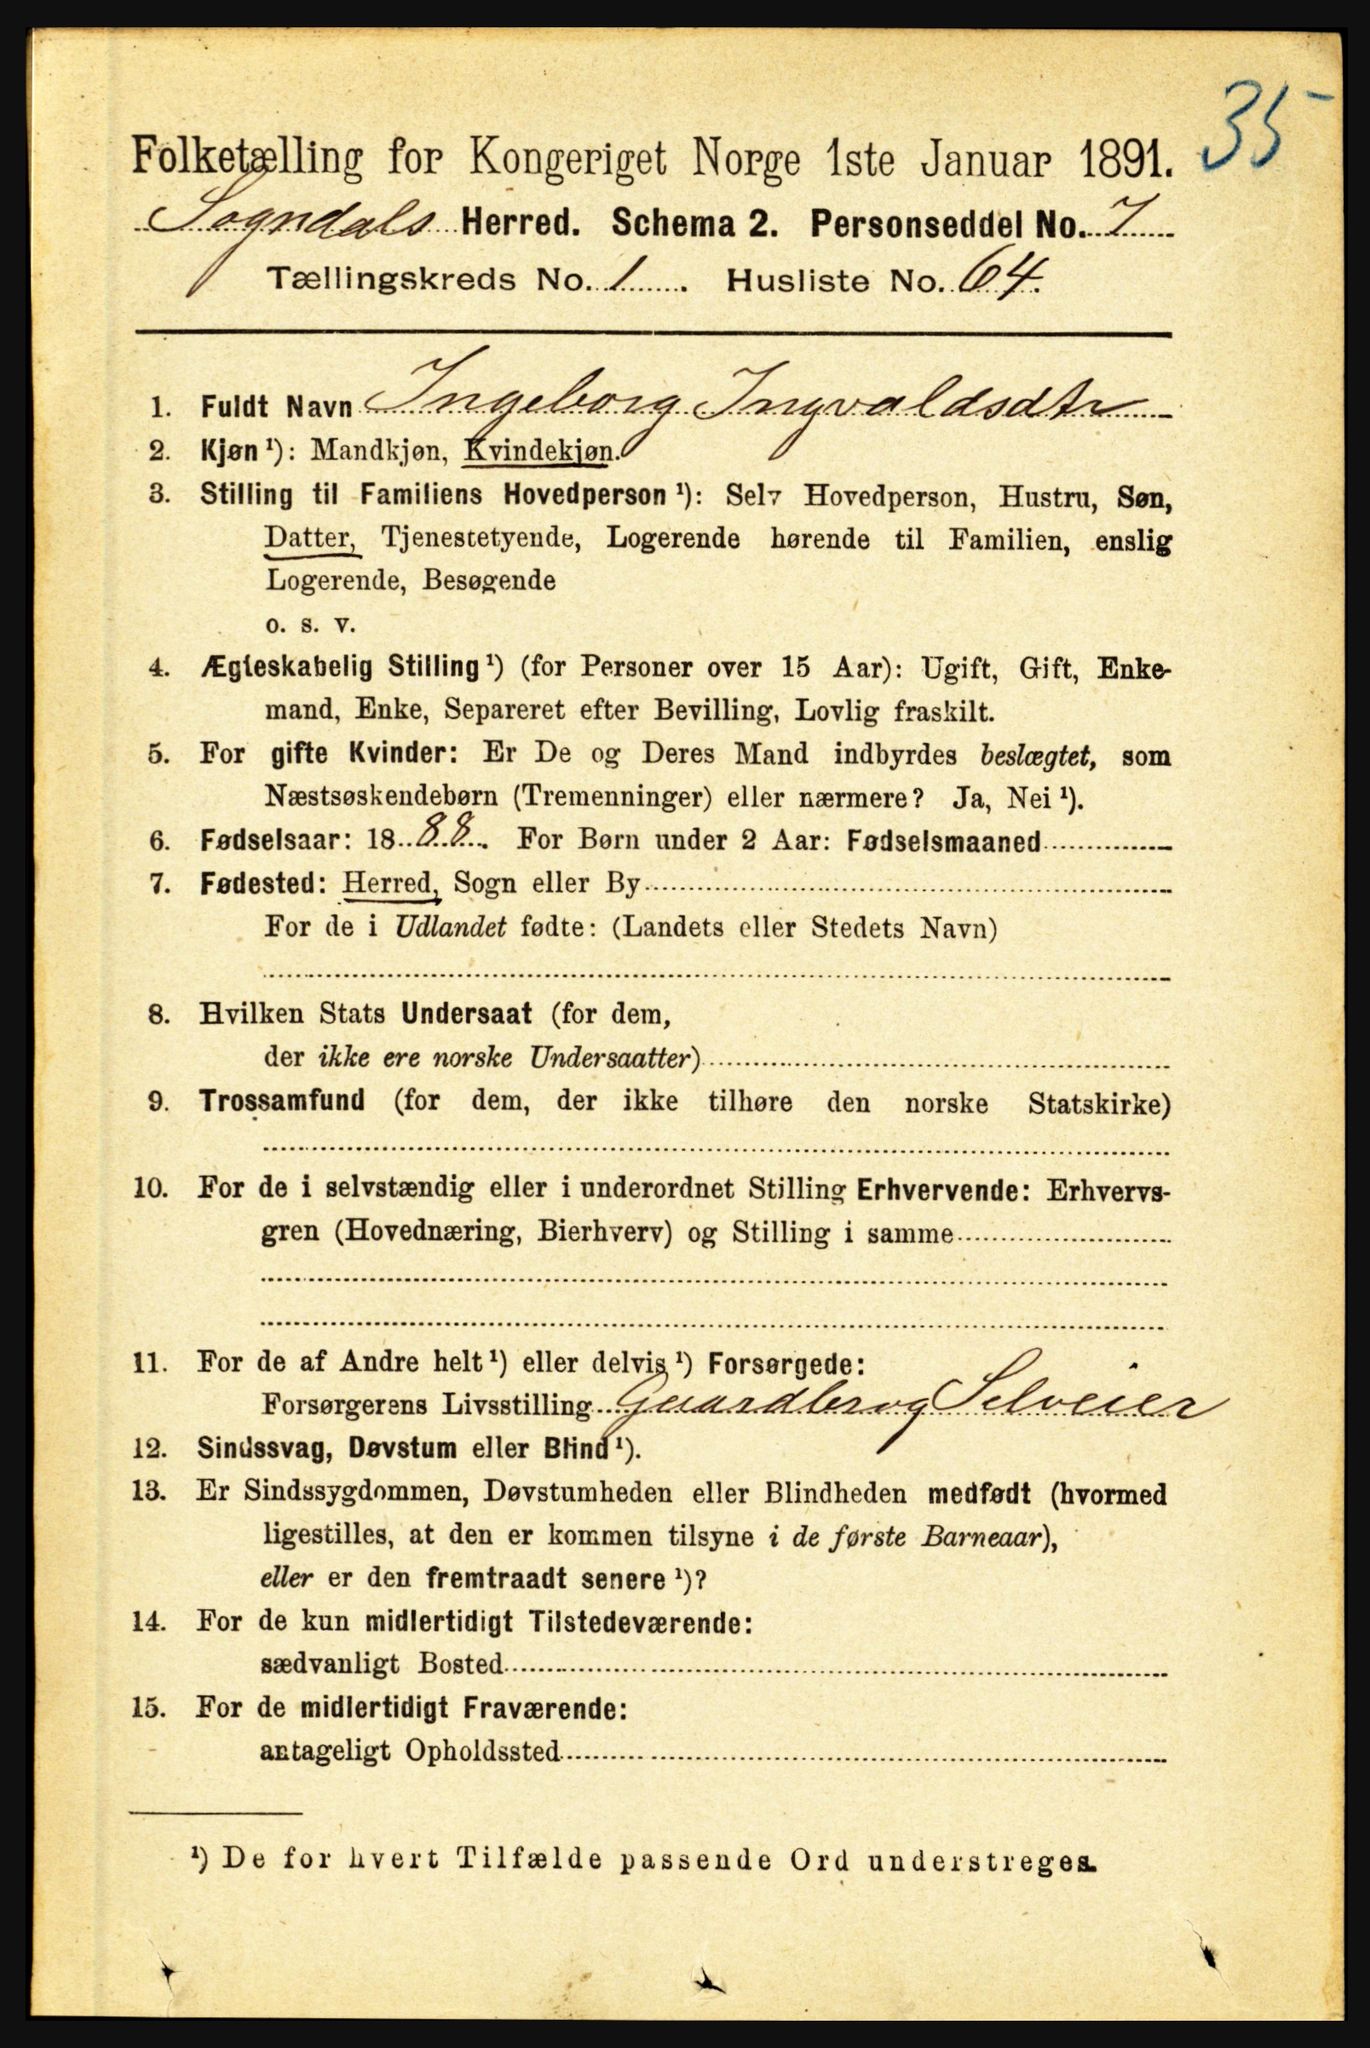 35
Folketælling for Kongeriget Norge 1ste Januar 1891.
Sogndals Herred. Schema 2. Personseddel No. 7
Tællingskreds No. 1. Husliste No. 64.
1. Fuldt Navn Ingeborg Ingvaldsdtr
2. Kjøn ¹): Mandkjøn, Kvindekjøn.
3. Stilling til Familiens Hovedperson ¹): Selv Hovedperson, Hustru, Søn,
Datter, Tjenestetyende, Logerende hørende til Familien, enslig
Logerende, Besøgende
o. s. v.
4. Ægteskabelig Stilling ¹) (for Personer over 15 Aar): Ugift, Gift, Enke-
mand, Enke, Separeret efter Bevilling, Lovlig fraskilt.
5. For gifte Kvinder: Er De og Deres Mand indbyrdes beslægtet, som
Næstsøskendebørn (Tremenninger) eller nærmere? Ja, Nei ¹).
6. Fødselsaar: 1888. For Børn under 2 Aar: Fødselsmaaned
7. Fødested: Herred, Sogn eller By
For de i Udlandet fødte: (Landets eller Stedets Navn)
8. Hvilken Stats Undersaat (for dem,
der ikke ere norske Undersaatter)
9. Trossamfund (for dem, der ikke tilhøre den norske Statskirke)
10. For de i selvstændig eller i underordnet Stilling Erhvervende: Erhvervs-
gren (Hovednæring, Bierhverv) og Stilling i samme
11. For de af Andre helt ¹) eller delvis ¹) Forsørgede:
Forsørgerens Livsstilling Gaardbr og Selveier
12. Sindssvag, Døvstum eller Blind ¹).
13. Er Sindssygdommen, Døvstumheden eller Blindheden medfødt (hvormed
ligestilles, at den er kommen tilsyne i de første Barneaar),
eller er den fremtraadt senere ¹)?
14. For de kun midlertidigt Tilstedeværende:
sædvanligt Bosted
15. For de midlertidigt Fraværende:
antageligt Opholdssted
¹) De for hvert Tilfælde passende Ord understreges.